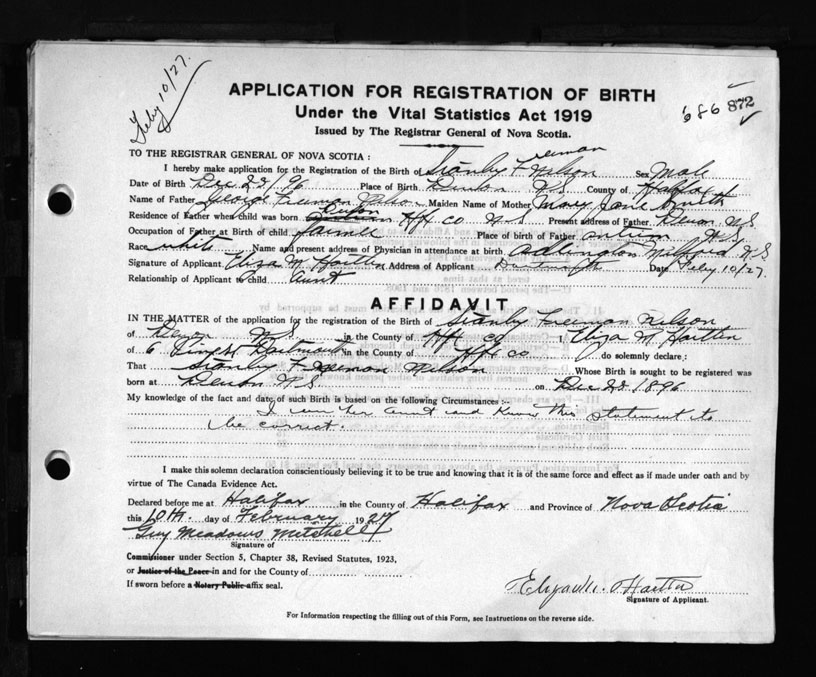 Feby 10/27.
686 872
APPLICATION FOR REGISTRATION OF BIRTH
Under the Vital Statistics Act 1919
Issued by The Registrar General of Nova Scotia.
TO THE REGISTRAR GENERAL OF NOVA SCOTIA :
I hereby make application for the Registration of the Birth of Stanley Freeman Nelson Sex Male
Date of Birth Dec 22/96 Place of Birth N.S. County of Halifax
Name of Father George Freeman Nelson Maiden Name of Mother Mary Jane Smith
Residence of Father when child was born Hfx Co N.S Present address of Father N.S
Occupation of Father at Birth of child farmer Place of Birth of Father Antrim N.S
Race white Name and present address of Physician in attendance at birth Milford N.S
Signature of Applicant Eliza M Address of Applicant Date Feby 10/27.
Relationship of Applicant to child Aunt
AFFIDAVIT
IN THE MATTER of the application for the registration of the Birth of Stanley Freeman Nelson
of N.S in the County of Hfx Co I Eliza M
of 6 Dartmouth in the County of Hfx Co do solemnly declare :
That Stanley Freeman Nelson Whose Birth is sought to be registered was
born at N.S on Dec 22 1896
My knowledge of the fact and date of such Birth is based on the following Circumstances :-
I am her aunt and know this statement to
be correct.
I make this solemn declaration conscientiously believing it to be true and knowing that it is of the same force and effect as if made under oath and by
virtue of The Canada Evidence Act.
Declared before me at Halifax in the County of Halifax and Province of Nova Scotia
this 10th. day of February 1927
Guy Meadows Mitchell
Signature of
Commissioner under Section 5, Chapter 38, Revised Statutes, 1923,
or Justice of the Peace in and for the County of
If sworn before a Notary Public affix seal.
Signature of Applicant.
For Information respecting the filling out of this Form, see Instructions on the reverse side.